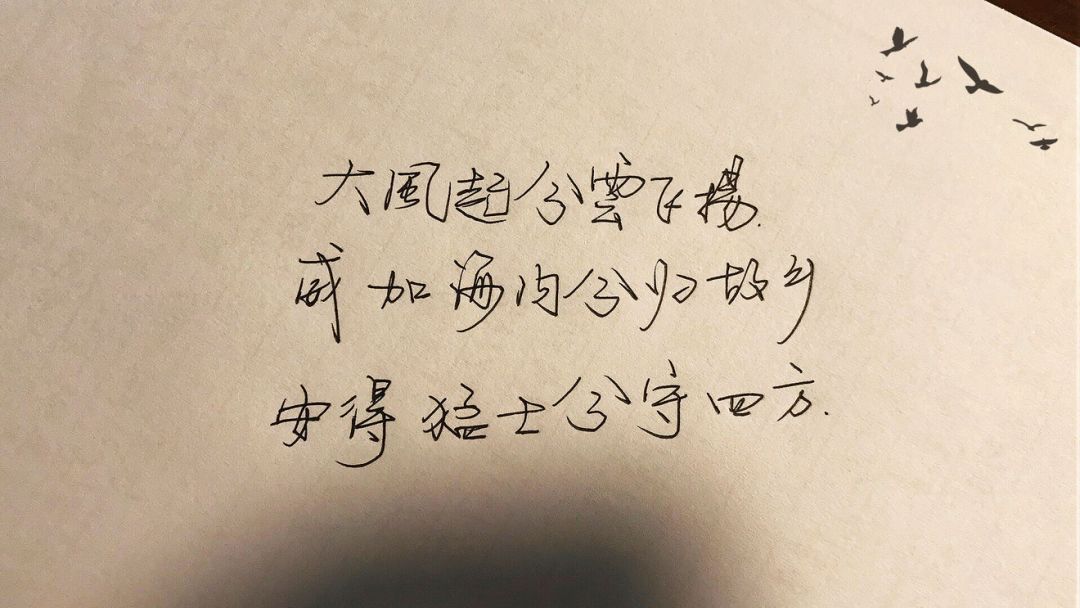 大風起兮雲飞揚.
威加海内兮归故乡
安得猛士兮守四方.